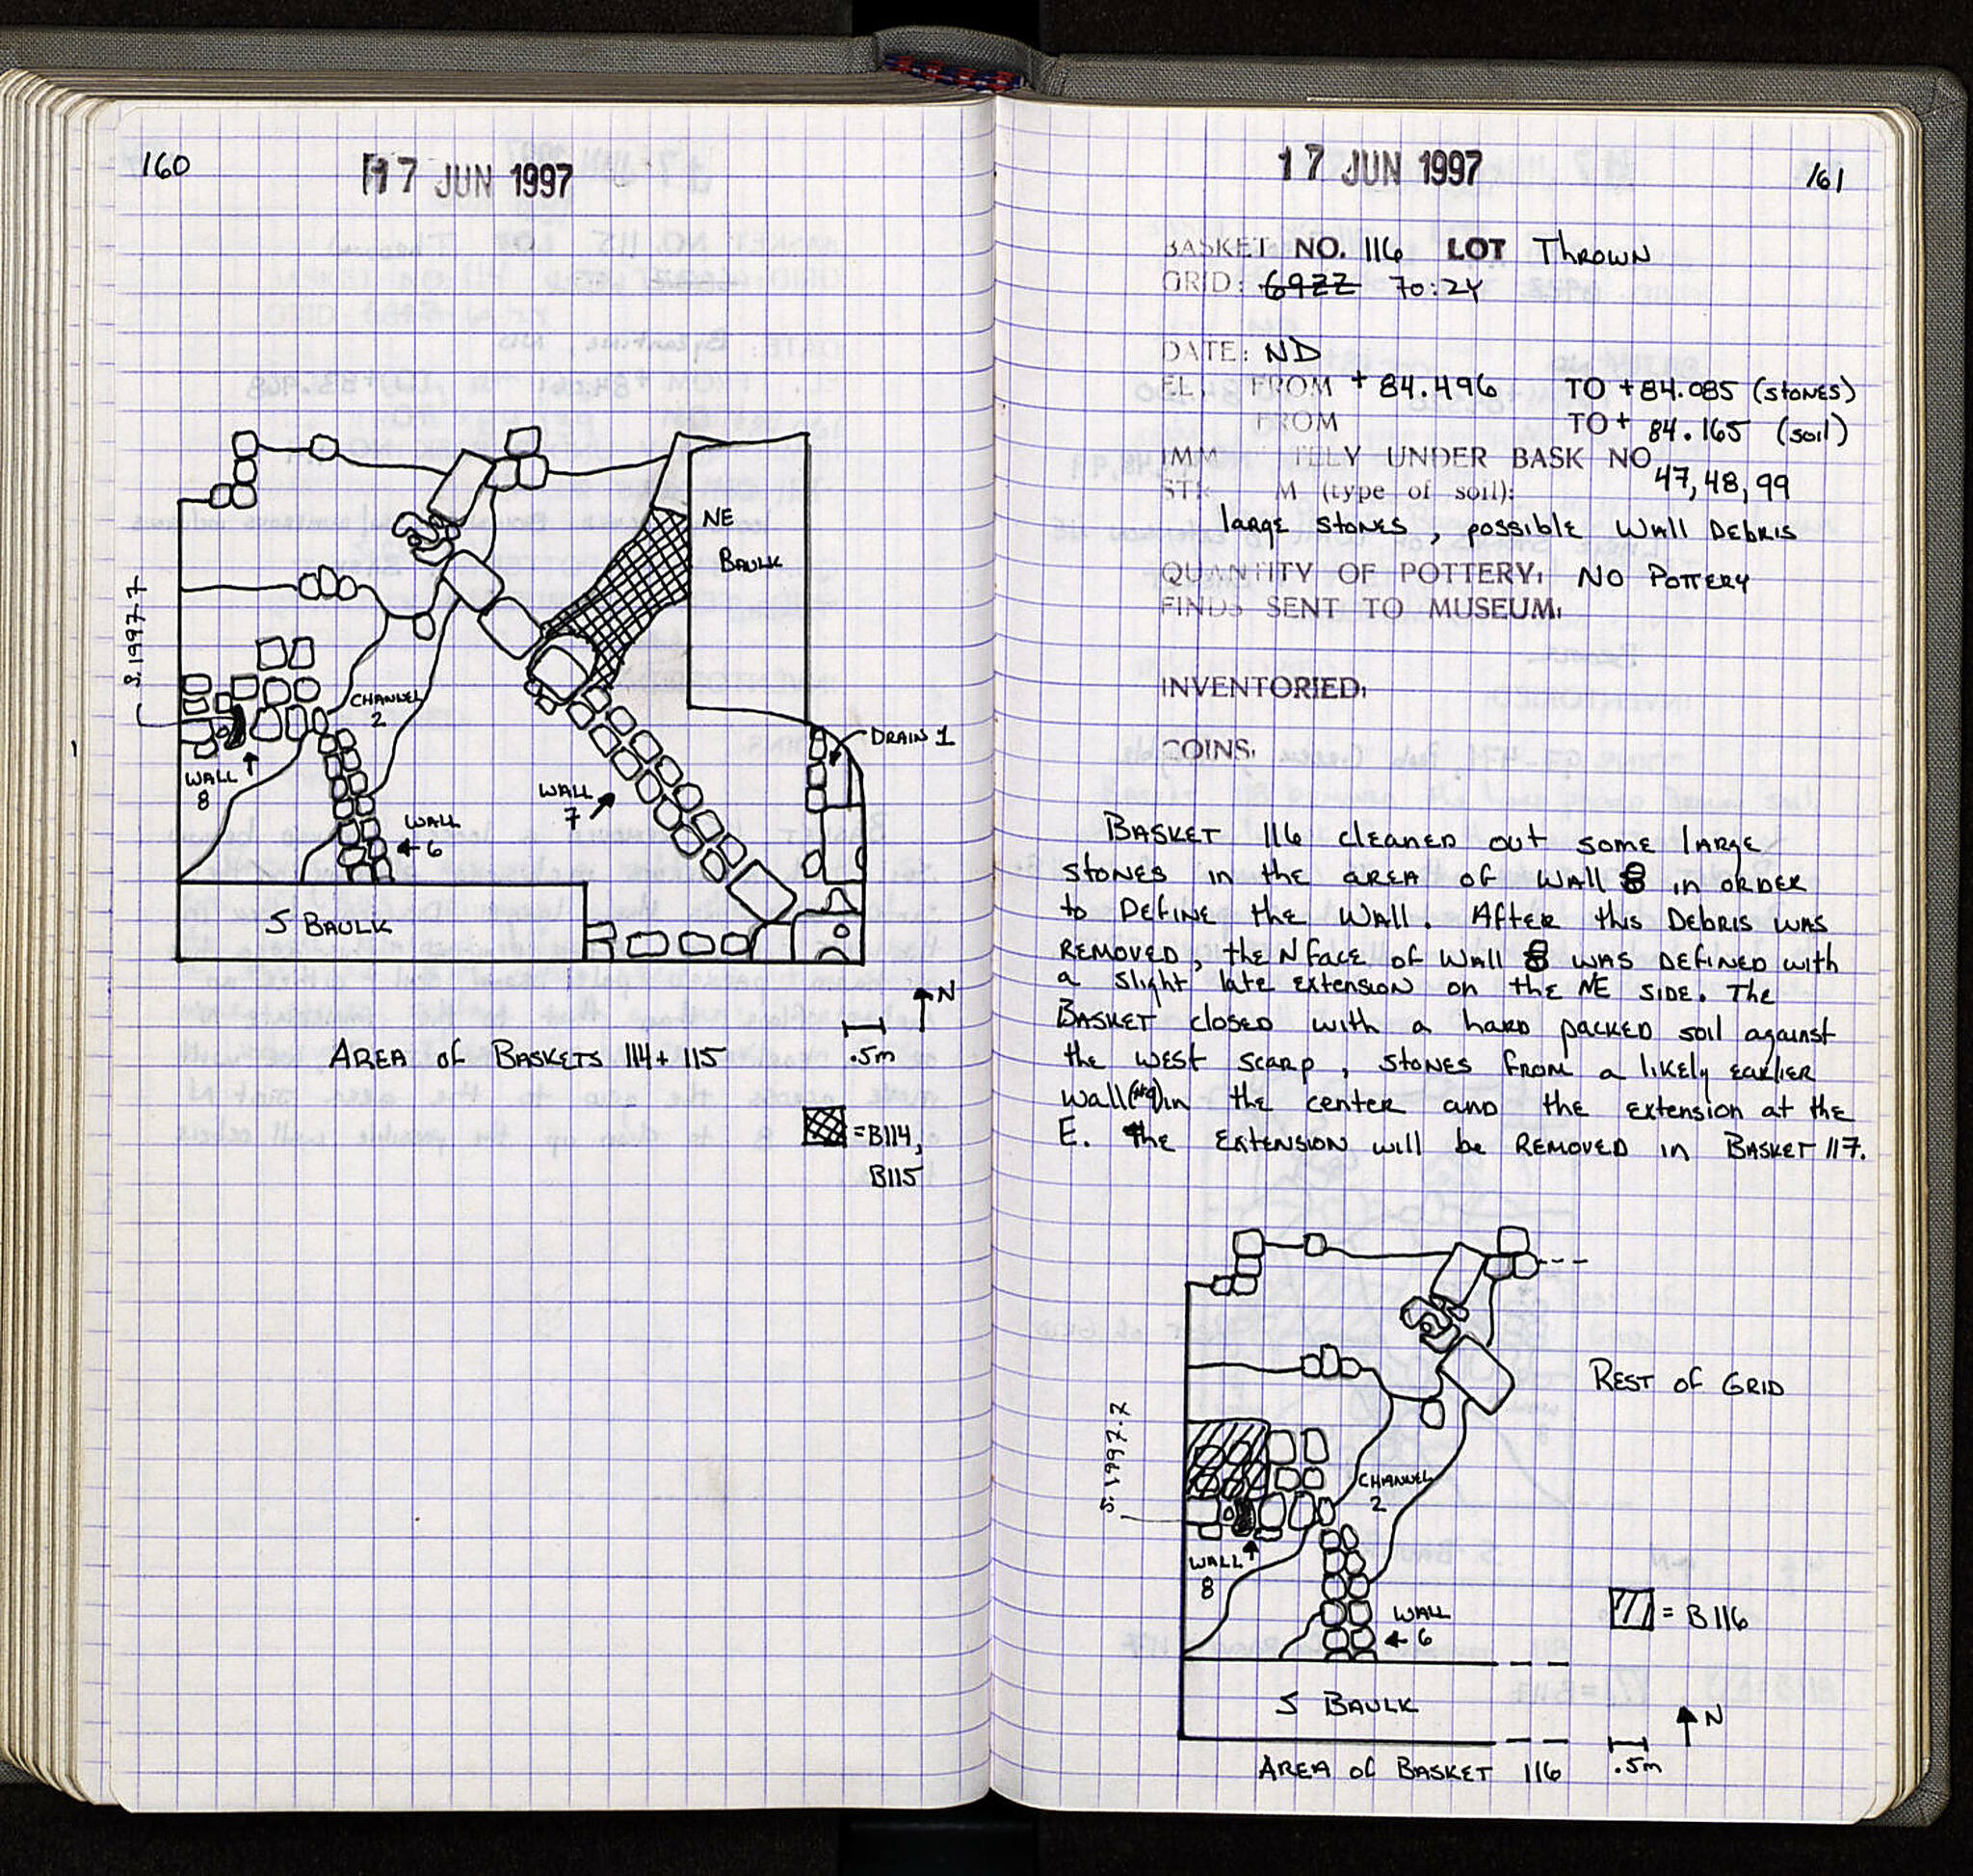 160
17 JUN 1997
NE
BAULK
S.1997.7
CHANNEL
2
DRAIN 1
WALL
8
WALL
7
WALL
6
S BAULK
N
.5m
AREA of BASKETS 114+ 115
=B114,
B115
17 JUN 1997
161
BASKET NO. 116 LOT Thrown
GRID: 69ZZ 70:ZY
DATE: ND
EL. FROM + 84.496 TO +84.085 (stones)
FROM TO + 84.165 (soil)
IMM TELY UNDER BASK NO
47, 48, 99
STR M (type of soil):
large stones, possible Wall Debris
QUANTITY OF POTTERY: NO POTTERY
FINDS SENT TO MUSEUM:
INVENTORIED:
COINS:
BASKET 116 cleaned out some large
stones in the AREA of WALL 8 in order
to Define the WALL. After this Debris was
REMOVED, the N face of Wall 8 was defined with
a slight late extension on the NE side. The
BASKET closed with a hard packed soil against
the west scarp, stones from a likely earlier
wall (#9) in the center and the extension at the
E. The extension will be REMOVED in BASKET 117.
REST of GRID
S.1997.7
CHANNEL
2
WALL
8
WALL
6
= B116
S BAULK
N
.5m
AREA of BASKET 116